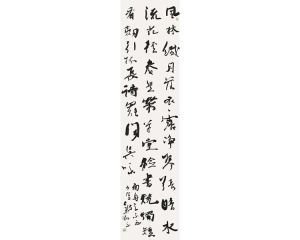 風林纖月落衣露淨琴張暗水
流花徑春星帶草堂檢書燒燭短
看劍引杯長詩罷聞吳詠